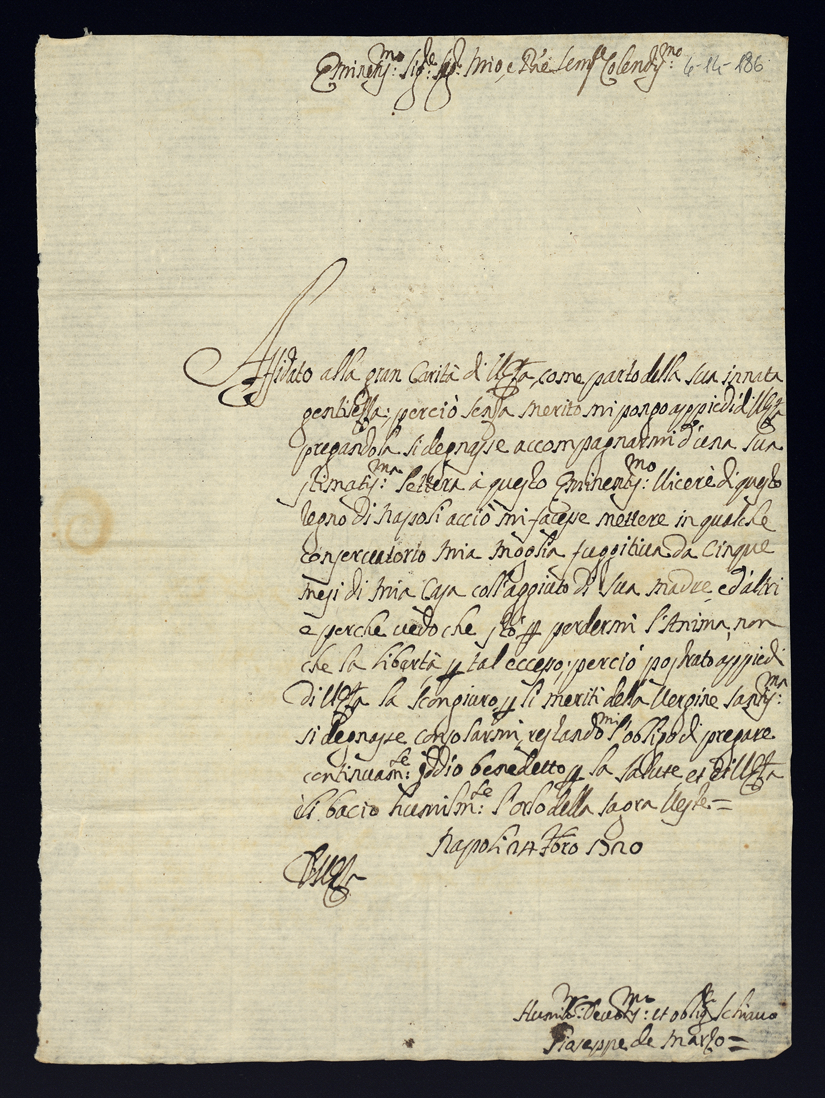 Eminentiss:mo Sig:re Sig: mio, e Pne semp Colendiss:mo 4-14-186
Affidato alla gran Carità di VEza come parto della sua innata
gentilezza; perciò senza merito mi pongo appiedi di VEza
pregandola si degnasse accompagnarmi d'una sua
stimatiss:ma lettera à questo Eminentiss:mo Vicerè di questo
regno di Napoli acciò mi facesse mettere in qualche
conservatorio mia moglia fuggitiva da Cinque
mesi di mia Casa coll'aggiuto di sua madre, ed altri
e perche vedo che stò p perdermi l'Anima, non
che la libertà p tal eccesso; perciò postrato appiedi
di VEza la scongiuro, p li meriti della Vergine Santiss:ma
si degnasse consolarmi, restandomi l'obligo di pregare
continuam:te Iddio benedetto p la salute et di VEza
li bacio humilm:te l'orlo della sagra Veste=
Napoli 24 7bro 1720
VEza
Humiliss:mo Devotiss:mo et oblig Schiavo
Giaseppe de Marzo=